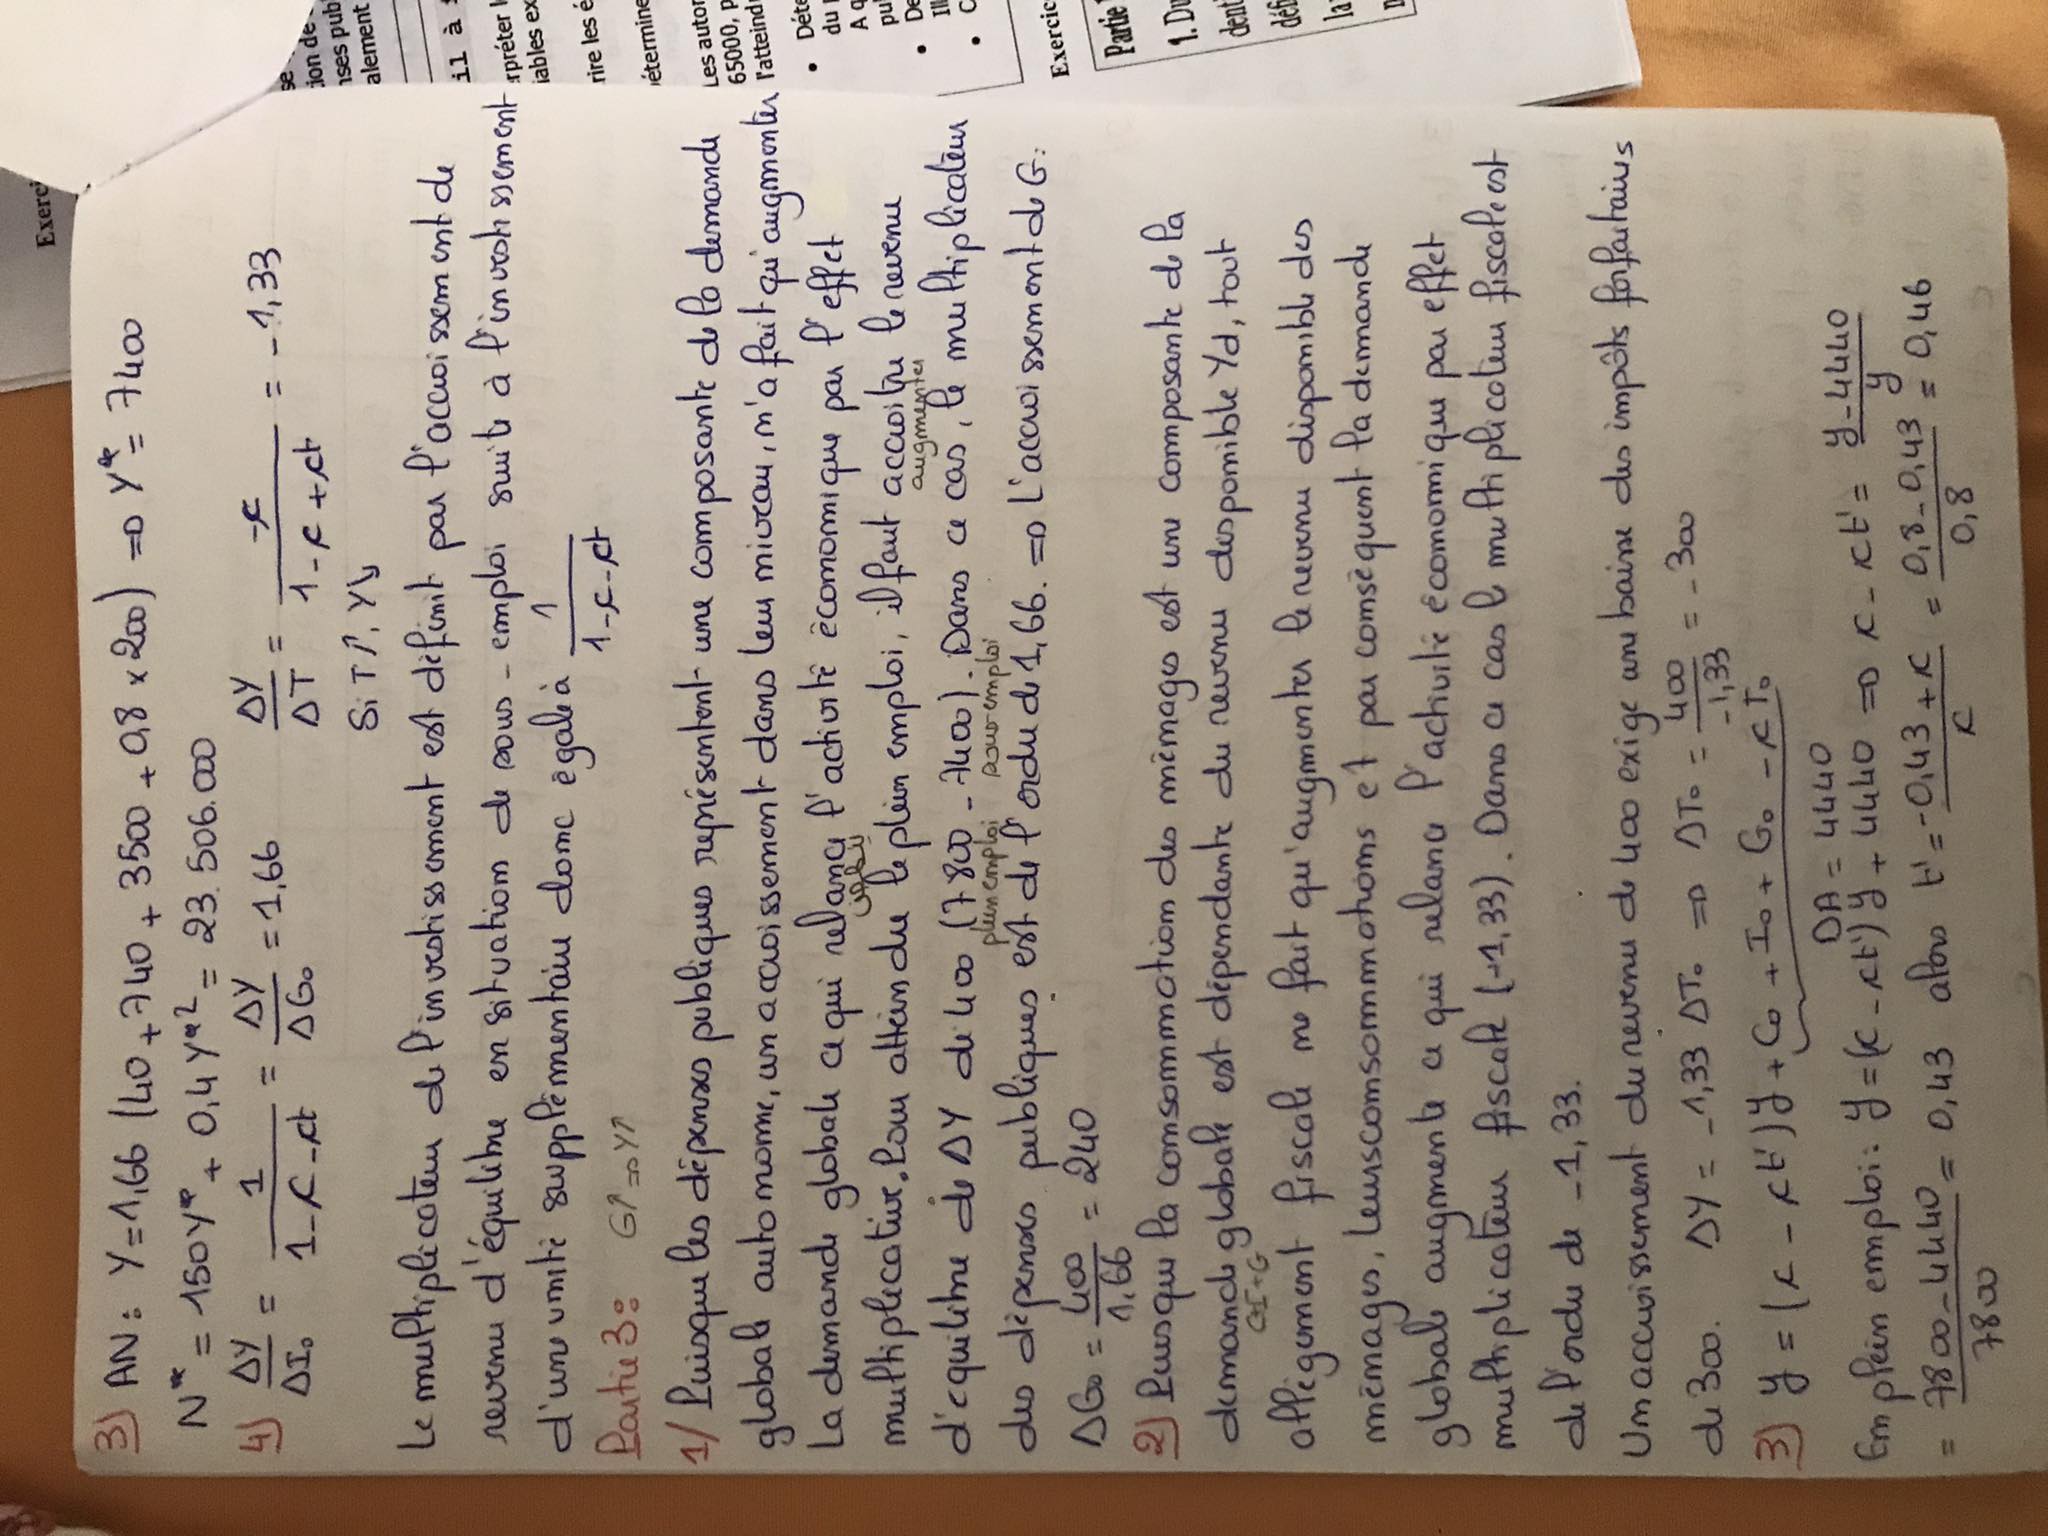 Exerci
3) AN: Y=1,66 (40+740+3500+0,8×200) => Y*=7400
N*=150Y*+0,4Y*²=23.506.000
4) ΔY/ΔI₀ = 1/(1-c-ct) = ΔY/ΔG₀ = 1,66 ΔY/ΔT = -c/(1-c+ct) = -1,33
Si T↗, Y↘
Le multiplicateur de l'investissement est définit par l'accroissement de
revenu d'équilibre en situation de sous-emploi suite à l'investissement
d'une unité supplémentaire donc égale à 1/(1-c-ct)
Partie 3: G↗=>Y↗
1/ Puisque les dépenses publiques représentent une composante de la demande
globale autonome, un accroissement dans leur niveau, n'a fait qu'augmenter
La demande globale ce qui relance l'activité économique par l'effet
multiplicative. Pour atteindre le plein emploi, il faut accroitre le revenu
augmenter
d'équilibre de ΔY de 400 (7800-7400). Dans ce cas, le multiplicateur
plein emploi sous-emploi
des dépenses publiques est de l'ordre de 1,66. => L'accroissement de G:
ΔG₀ = 400/1,66 = 240
2) Puisque la consommation des ménages est une composante de la
demande globale est dépendante du revenu disponible Yd, tout
C+I+G
allégement fiscale ne fait qu'augmenter le revenu disponible des
ménages, leurs consommations et par conséquent la demande
globale augmente ce qui relance l'activité économique par effet
multiplicateur fiscale (-1,33). Dans ce cas le multiplicateur fiscale est
de l'ordre de -1,33.
Un accroissement du revenu de 400 exige une baisse des impôts forfaitaires
de 300. ΔY = -1,33 ΔT₀ => ΔT₀ = 400/-1,33 = -300
3) y=(c-ct')y+C₀+I₀+G₀-cT₀
DA=4440
En plein emploi: y=(c-ct')y+4440 => c-ct' = (y-4440)/y
= (7800-4440)/7800 = 0,43 alors t' = (-0,43+c)/c = (0,8-0,43)/0,8 = 0,46
se
tion de
nses pub
alement
il à
rpréter
iables ex
rire les é
étermine
Les autor
65000, p
l'atteind
• Déte
du
A q
pu
• De
Ill
• C
Exercice
Partie
1. Du
dent
défi
la